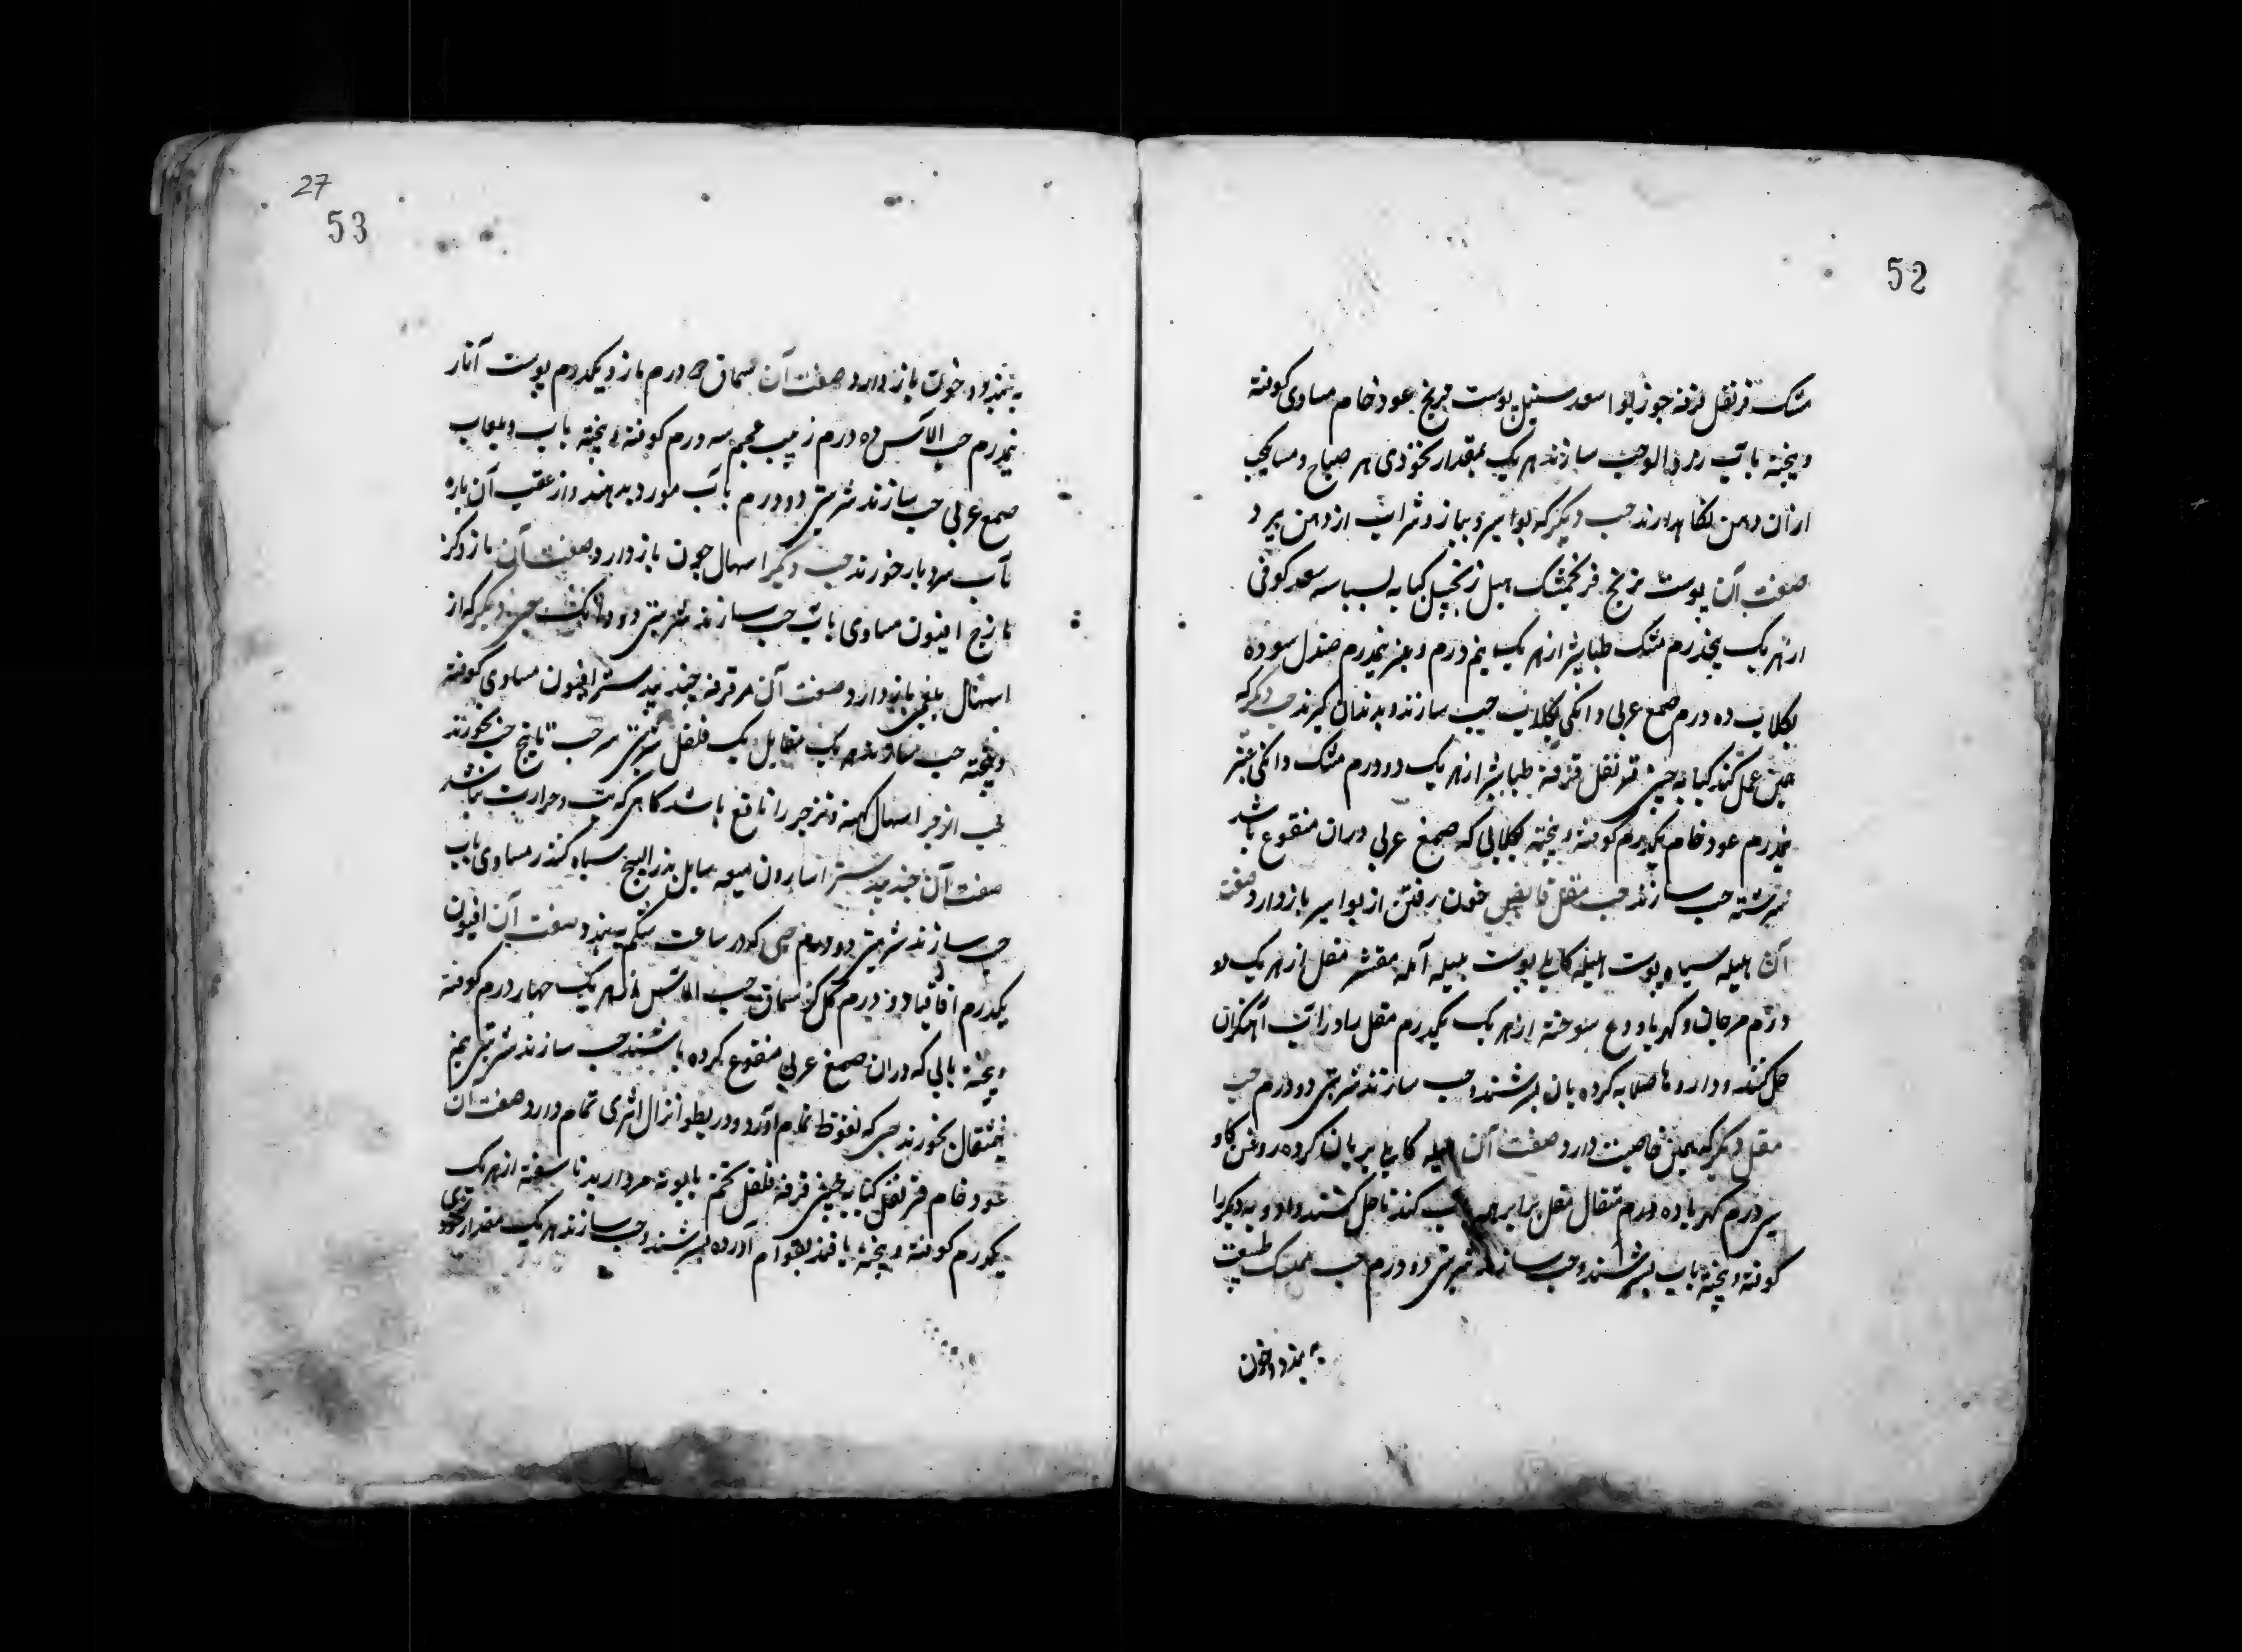 52
مشک قرنفل قرفه جوز بوا سعد سنبل پوست ترنج عود خام مساوی کوفته
و بیخته با آب حب سازند هر یک بمقدار نخودی هر صباح و مسا یک حب
ازان در دهن نگاه دارند حب دیگر که بوی سیر و پیاز و شراب از دهن ببرد
صفت آن پوست ترنج فرنجمشک هیل زنجبیل کبابه بسباسه سعد کوفی
از هر یک پنجدرم مشک طباشیر از هر یک نیم درم و عنبر نیمدرم صندل سوده
بگلاب ده درم صمغ عربی دانگی بگلاب حب سازند و بدندان گیرند حب دیگر که
همین عمل کند کبابه چینی قرنفل قرفه طباشیر از هر یک دو درم مشک دانگی عنبر
نیمدرم عود خام یکدرم کوفته و بیخته بگلابی که صمغ عربی دران منقوع باشد
بسرشته حب سازند حب مقل قابض خون رفتن از بواسیر باز دارد صفت
آن هلیله سیاه پوست هلیله کابلی پوست بلیله آمله مقشر مقل از هر یک دو
درم مرجان و کهربا و ودع سوخته از هر یک یکدرم مقل را در آب آهنگران
حل کنند و داروها صلایه کرده بان بسرشند و حب سازند شربتی دو درم حب
مقل دیگر که همین خاصیت دارد صفت آن هلیله کابلی بریان کرده روغن گاو
سی درم کهربا ده درم مقل برابر همه آب کندنا حل کنند و ادویه دیگر را
کوفته و بیخته باب بسرشند و حب سازند شربتی دو درم حب ممسک طبیعت
به بندد و خون
27
53
به بندد و خون باز دارد صفت آن سماق درم مازو یکدرم پوست انار
نیمدرم حب الآس ده درم زبیب عجم سه درم کوفته و بیخته باب و بلعاب
صمغ عربی حب سازند شربتی دو درم با آب مورد بدهند و از عقب آن باره
آب سرد بار خورند حب دیگر اسهال خون باز دارد صفت آن مازو کز
مازج افیون مساوی باب حب سازند شربتی دو دانگ حب دیگر که از
اسهال بلغمی باز دارد صفت آن مر قرفه جندبیدستر افیون مساوی کوفته
و بیخته حب سازند هر یک مقابل یک فلفل شربتی سه حب تا پنج حب بخورند
حب اوفر اسهال کهنه و زحیر را نافع باشد گاهی که تب و حرارت نباشد
صفت آن جندبیدستر اسارون میعه سایل بذر البنج سیاه کندر مساوی باب
حب سازند شربتی دو درم حبی که در ساعت شکم به بندد صفت آن افیون
یکدرم اقاقیا دو درم گل کز سماق حب الآس از هر یک چهار درم کوفته
و بیخته بابی که دران صمغ عربی منقوع کرده باشند حب سازند شربتی نیم
نیمثقال بخورند حبی که نعوظ تمام آورد و در بطو انزال اثری تمام دارد صفت آن
عود خام قرنفل کبابه چینی قرفه فلفل تخم بابونه مروارید ناسفته از هر یک
یکدرم کوفته و بیخته با قند بقوام آورده بسرشند و حب سازند هر یک مقدار نخودی